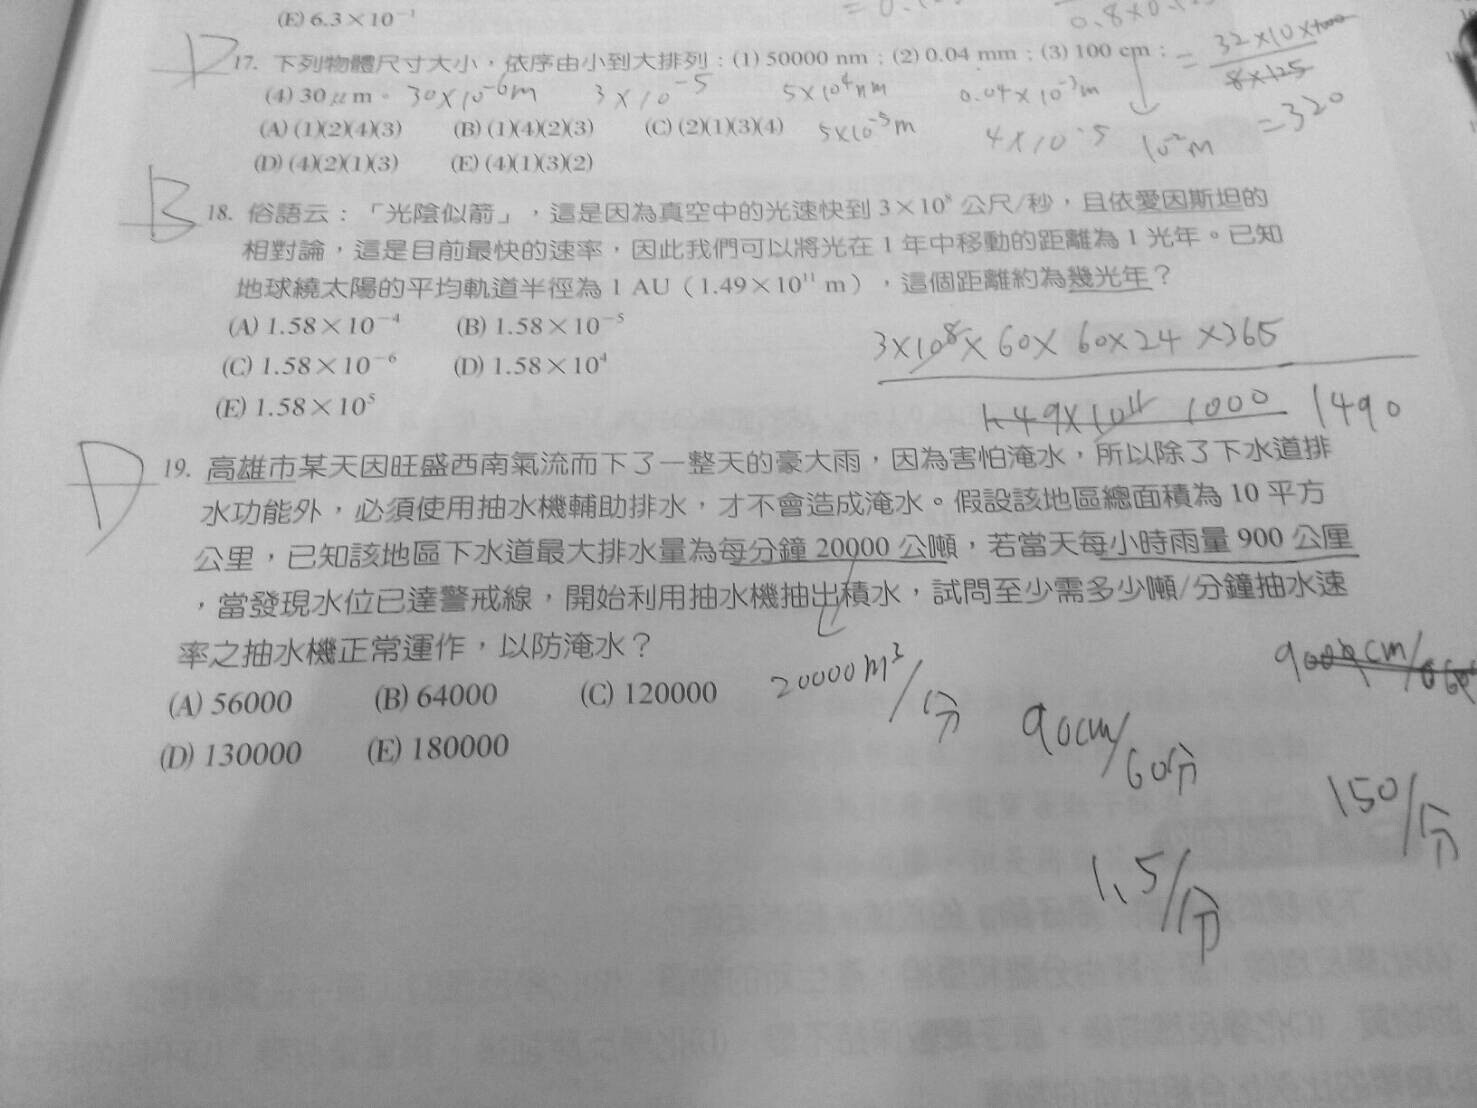 (E) 6.3×10⁻¹
= 0.
0.8×0.125
D
17. 下列物體尺寸大小，依序由小到大排列：(1) 50000 nm；(2) 0.04 mm；(3) 100 cm；
= 32×10×1000
8×125
(4) 30 μm。 30×10⁻⁶m 3×10⁻⁵ 5×10⁴nm 0.04×10⁻³m
= 320
(A) (1)(2)(4)(3) (B) (1)(4)(2)(3) (C) (2)(1)(3)(4) 5×10⁻⁵m 4×10⁻⁵ 10⁻²m
(D) (4)(2)(1)(3) (E) (4)(1)(3)(2)
B
18. 俗語云：「光陰似箭」，這是因為真空中的光速快到 3×10⁸ 公尺/秒，且依愛因斯坦的
相對論，這是目前最快的速率，因此我們可以將光在 1 年中移動的距離為 1 光年。已知
地球繞太陽的平均軌道半徑為 1 AU（1.49×10¹¹ m），這個距離約為幾光年？
(A) 1.58×10⁻⁴ (B) 1.58×10⁻⁵
3×10⁸×60×60×24×365
(C) 1.58×10⁻⁶ (D) 1.58×10⁴
(E) 1.58×10⁵
1.49×10¹¹ 1000 1490
D
19. 高雄市某天因旺盛西南氣流而下了一整天的豪大雨，因為害怕淹水，所以除了下水道排
水功能外，必須使用抽水機輔助排水，才不會造成淹水。假設該地區總面積為 10 平方
公里，已知該地區下水道最大排水量為每分鐘 20000 公噸，若當天每小時雨量 900 公厘
，當發現水位已達警戒線，開始利用抽水機抽出積水，試問至少需多少噸/分鐘抽水速
率之抽水機正常運作，以防淹水？
(A) 56000 (B) 64000 (C) 120000 20000m³/分
(D) 130000 (E) 180000
90cm/60分
150/分
1.5/分